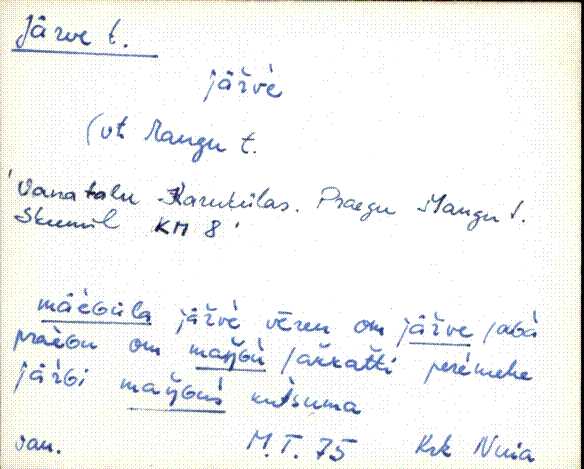 Järve t.
jäŕvè
(vt Mangu t.
'Vana talu Karukülas. Praegu Mangu t.
Skeemil KM 8'
mäèGüla jäŕvè vēren om järve
praèGu om maŋGù perèmehe
järGi maŋGus kutsuma
van. M.T. 75 Krk Nuia